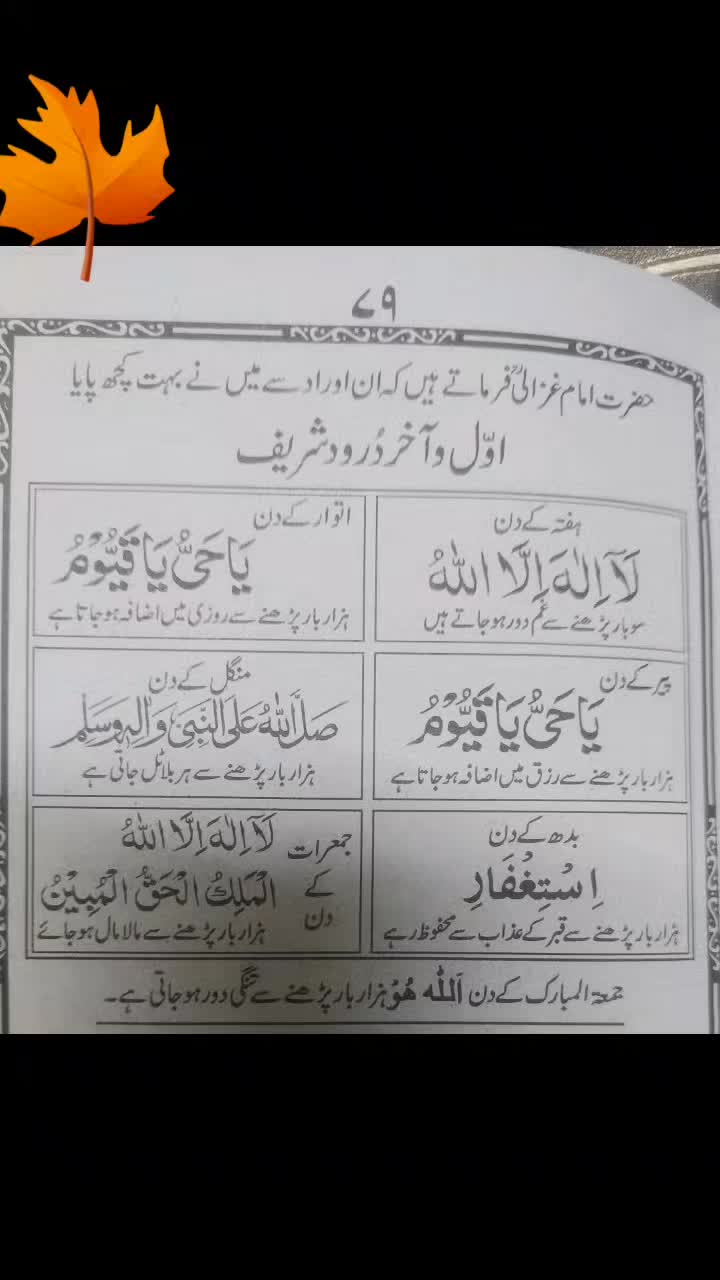 ۷۹
حضرت امام غزالیؒ فرماتے ہیں کہ ان اوراد سے میں نے بہت کچھ پایا
اوّل و آخر دُرود شریف
ہفتہ کے دن
لَآ اِلٰهَ اِلَّا اللّٰهُ
سو بار پڑھنے سے غم دور ہو جاتے ہیں
اتوار کے دن
یَا حَیُّ یَا قَیُّوْمُ
ہزار بار پڑھنے سے روزی میں اضافہ ہو جاتا ہے
پیر کے دن
یَا حَیُّ یَا قَیُّوْمُ
ہزار بار پڑھنے سے رزق میں اضافہ ہو جاتا ہے
منگل کے دن
صَلَّی اللّٰهُ عَلَی النَّبِیِّ وَاٰلِهٖ وَسَلَّم
ہزار بار پڑھنے سے ہر بلا ٹل جاتی ہے
بدھ کے دن
اِسْتِغْفَارِ
ہزار بار پڑھنے سے قبر کے عذاب سے محفوظ رہے
جمعرات کے دن
لَآ اِلٰهَ اِلَّا اللّٰهُ
الْمَلِكُ الْحَقُّ الْمُبِیْنُ
ہزار بار پڑھنے سے مالا مال ہو جائے
جمعۃ المبارک کے دن اَللّٰه هُوْ ہزار بار پڑھنے سے تنگی دور ہو جاتی ہے۔